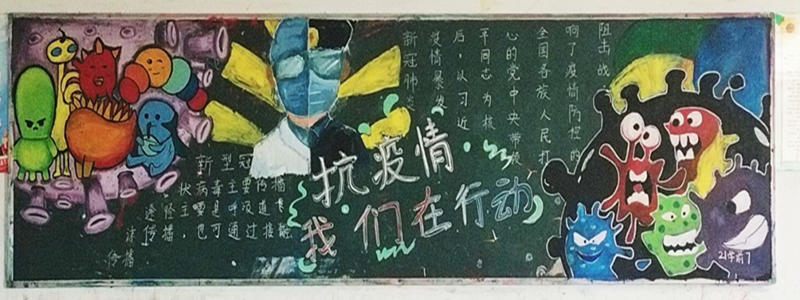 新冠肺炎
疫情暴发
后，以习近
平同志为核
心的党中央带领
全国各族人民打
响了疫情防控的
阻击战
抗疫情
我们在行动
新型冠
状病毒主要传播
主要是呼
可通过接
传播
21学前7